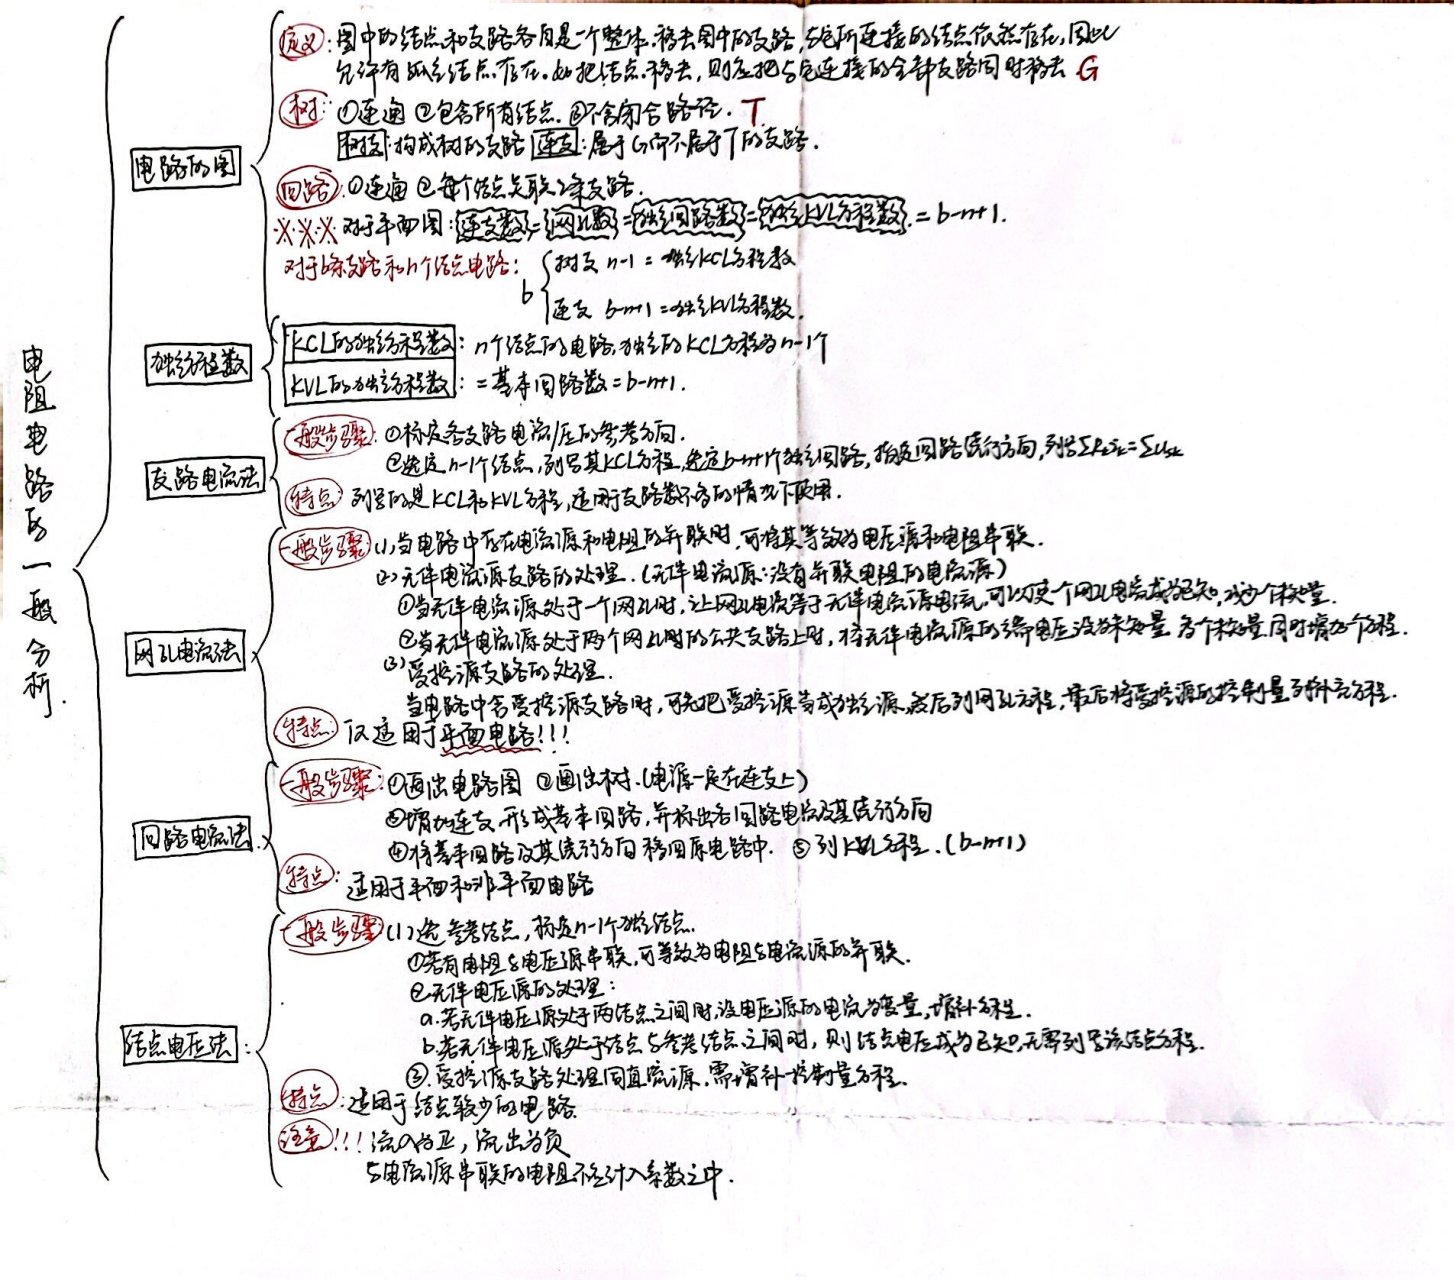 电阻电路的一般分析.
电路的图
定义:图中的结点和支路各自是一个整体.移去图中的支路,与它所连接的结点依然存在,因此
允许有孤立结点存在.如把结点移去,则应把与它连接的全部支路同时移去 G
树:①连通 ②包含所有结点.③不含闭合路径. T
树支:构成树的支路 连支:属于G而不属于T的支路.
回路:①连通 ②每个结点关联2条支路.
※※※ 对于平面图:连支数=网孔数=独立回路数=独立KVL方程数.=b-n+1.
对于b条支路和n个结点电路:
b
树支 n-1=独立KCL方程数
连支 b-n+1=独立KVL方程数.
独立方程数
KCL的独立方程数:n个结点的电路,独立的KCL方程为n-1个
KVL的独立方程数:=基本回路数=b-n+1.
支路电流法
一般步骤:①标定各支路电流/压的参考方向.
②选定n-1个结点,列写其KCL方程,选定b-n+1个独立回路,指定回路绕行方向,列写ΣRkik=Σusk
特点:列写的是KCL和KVL方程,适用于支路数不多的情况下使用.
网孔电流法
一般步骤(1)当电路中存在电流源和电阻的并联时,可将其等效为电压源和电阻串联.
(2)无伴电流源支路的处理.(无伴电流源:没有并联电阻的电流源)
①当无伴电流源处于一个网孔时,让网孔电流等于无伴电流源电流,可以使一个网孔电流成为已知,减少个未知量.
②当无伴电流源处于两个网孔时的公共支路上时,将无伴电流源的端电压设为未知量 多个未知量同时增加个方程.
(3)受控源支路的处理.
当电路中含受控源支路时,可先把受控源当成独立源,然后列网孔方程,最后将受控源的控制量列补充方程.
特点:仅适用于平面电路!!!
回路电流法
一般步骤:①画出电路图 ②画出树.(电源一定在连支上)
③增加连支,形成基本回路,并标出各回路电流及其绕行方向
④将基本回路及其绕行方向移回原电路中. ⑤列KVL方程.(b-n+1)
特点:适用于平面和非平面电路
结点电压法:
一般步骤(1)选参考结点,标定n-1个独立结点.
①若有电阻与电压源串联,可等效为电阻与电流源的并联.
②无伴电压源的处理:
a.若无伴电压源处于两结点之间时,设电压源的电流为变量,增补方程.
b.若无伴电压源处于结点与参考结点之间时,则结点电压成为已知,无需列写该结点方程.
③.受控源支路处理同直流源,需增补一控制量方程.
特点:适用于结点较少的电路.
注意!!!流入为正,流出为负
与电流源串联的电阻不会计入系数之中.